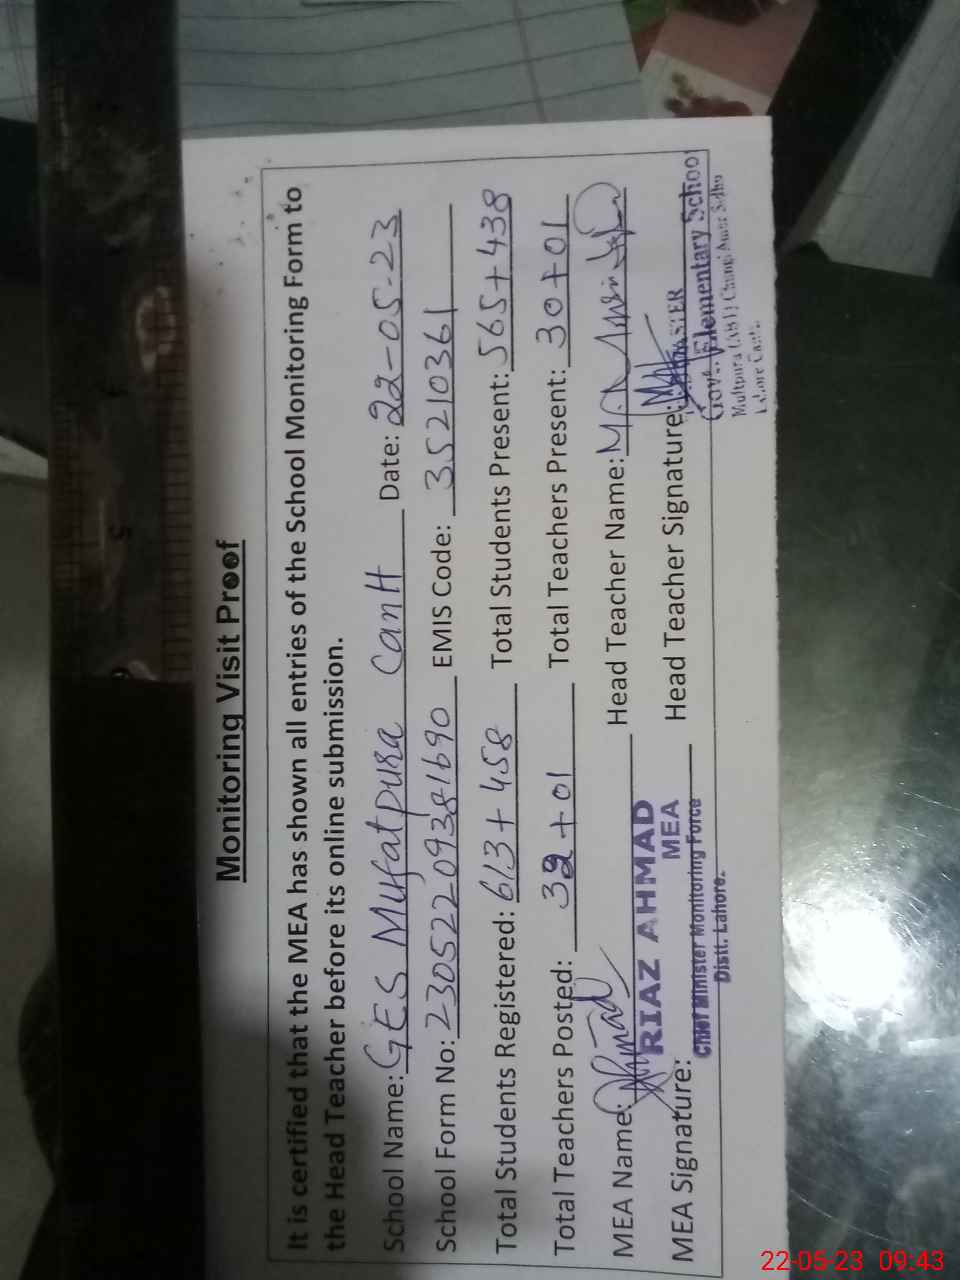 Monitoring Visit Proof
It is certified that the MEA has shown all entries of the School Monitoring Form to
the Head Teacher before its online submission.
School Name: GES Mufatpura Cantt Date: 22-05-23
School Form No: 23052209381690 EMIS Code: 35210361
Total Students Registered: 613+458 Total Students Present: 565+438
Total Teachers Posted: 32+01 Total Teachers Present: 30+01
MEA Name: Ahmad Head Teacher Name:
RIAZ AHMAD
MEA
MEA Signature: Head Teacher Signature:
Chief Minister Monitoring Force
Distt. Lahore.
Govt. Elementary School
Multpura (AB1) Chungi Amer Sidhu
Lahore Cantt.
22-05-23 09:43